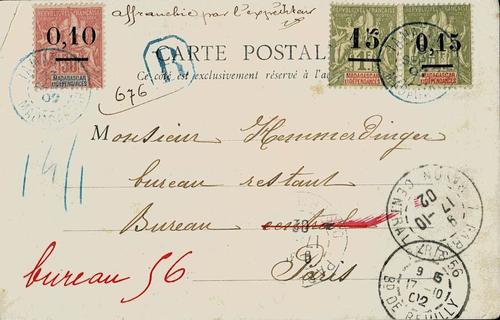 affranchie par l'expéditeur
0,10
15
0,15
MADAGASCAR
ET DÉPENDANCES
MADAGASCAR
ET DÉPENDANCES
MADAGASCAR
ET DÉPENDANCES
R
CARTE POSTALE
Ce côté est exclusivement réservé à l'a
676
Monsieur Hemmerdinger
bureau restant
Bureau central
Paris
bureau 56
17-10
02
PARIS 56
17-10
02
BD DE REUILLY